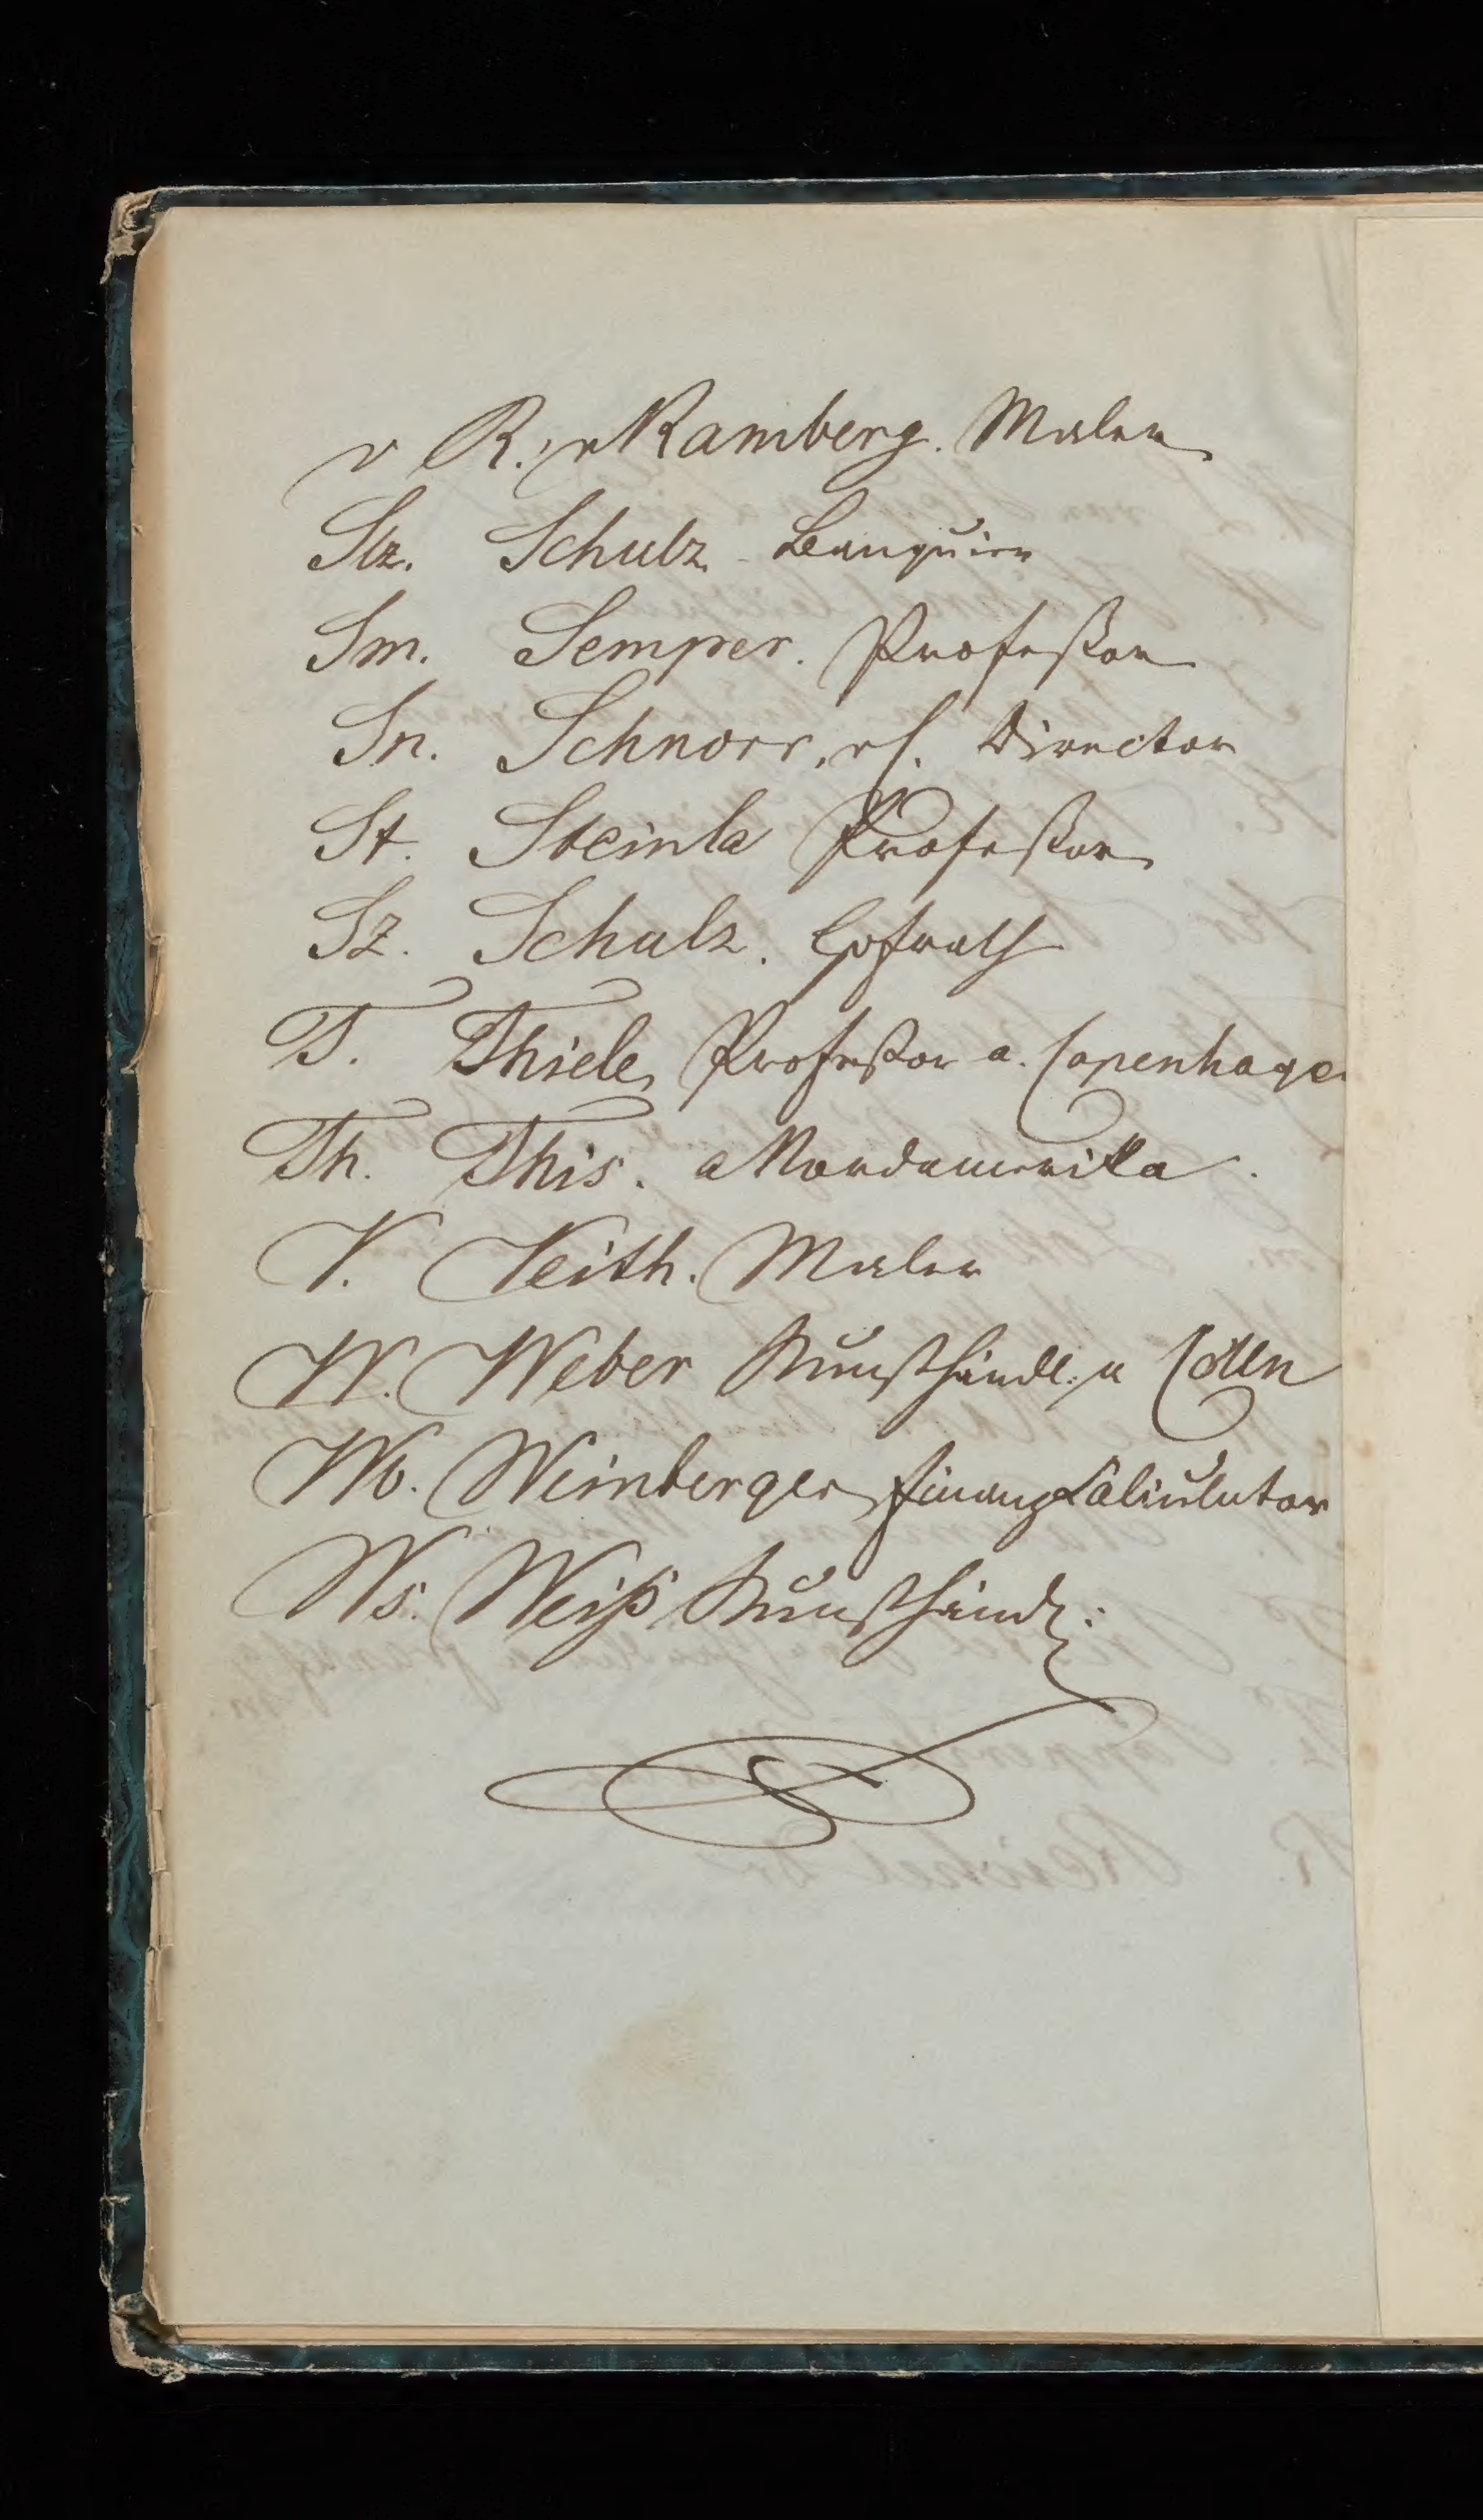 v R. v Ramberg. Maler
Slz. Schulz Banquier
Sm. Semper. Professor
Sn. Schnorr, v. C. Director
St. Steinla Professor
Sz. Schulz. Hofrath
T. Thiele, Professor a. Copenhagen
Th. This. a Nordamerika.
V. Veith. Maler
W. Weber Kunsthändl. a Cölln
Wb. Weinberger Finanz Calculator
Ws. Weiß Kunsthändl: